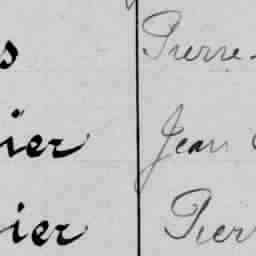 s Pierre-
ier Jean
ier Pierr